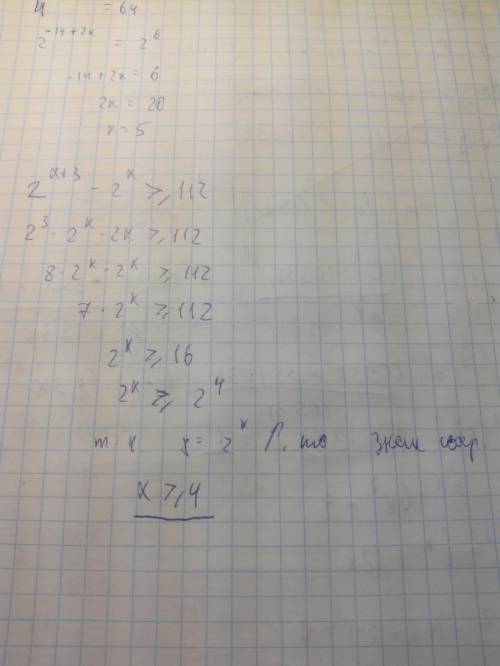 4 = 64
2^{-14+2x} = 2^6
-14+2x = 6
2x = 20
x = 5
2^{x+3} - 2^x ⩾ 112
2^3 · 2^x - 2x ⩾ 112
8 · 2^x - 2^x ⩾ 112
7 · 2^x ⩾ 112
2^x ⩾ 16
2^x ⩾ 2^4
т к y = 2^x ↑, то знак сохр
x ⩾ 4